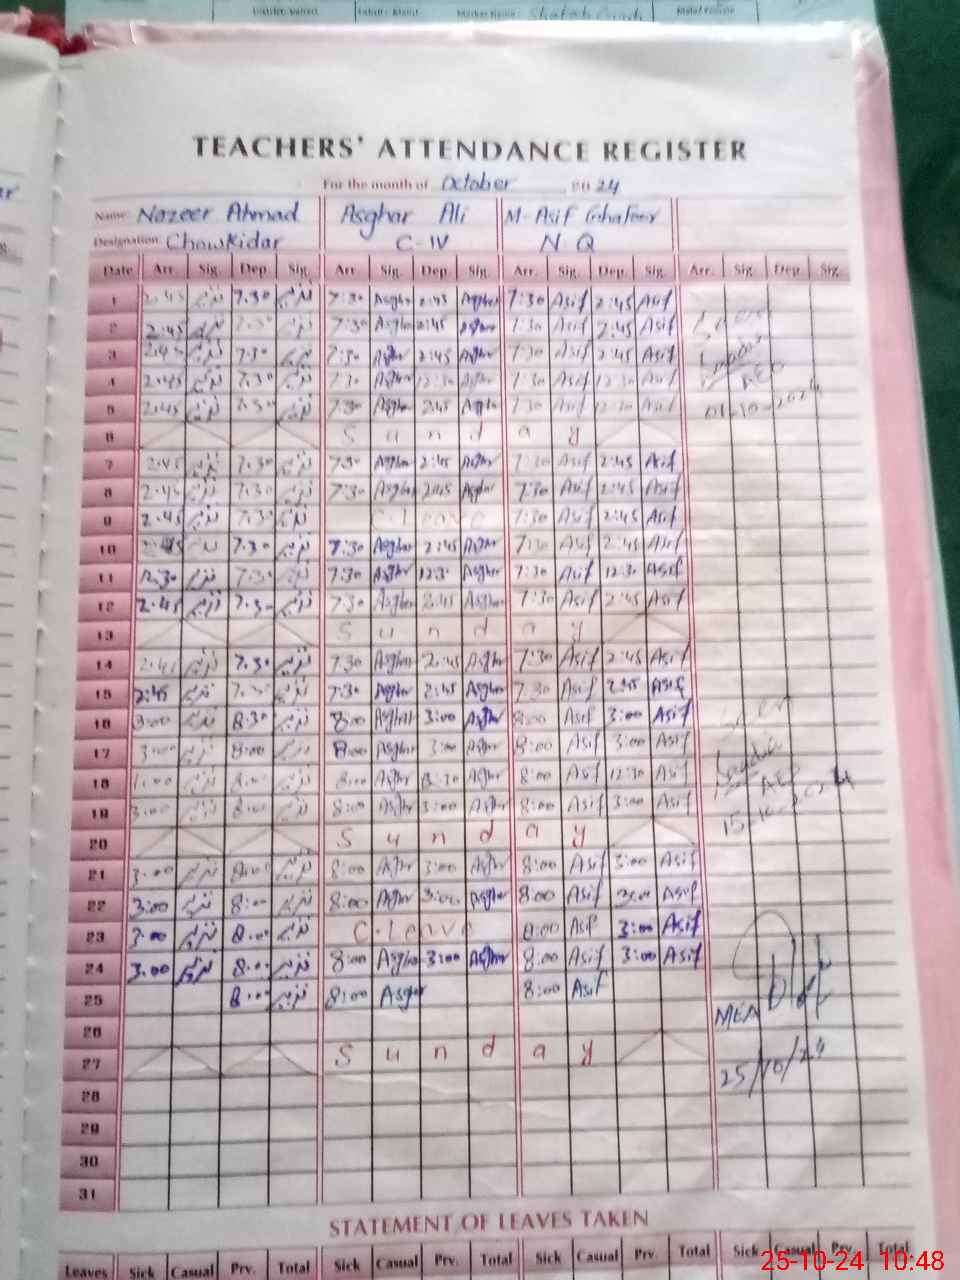 TEACHERS' ATTENDANCE REGISTER
For the month of October 20 24
Name: Nazeer Ahmad Asghar Ali M-Asif Ghafoor
Designation Chowkidar C-IV N-Q
Date Arr. Sig. Dep. Sig. Arr Sig. Dep. Sig. Arr. Sig. Dep. Sig. Arr. Sig. Dep. Sig.
1 2:45 نزیر 7.30 نزیر 7:30 Asghar 2:45 Asghar 7:30 Asif 2:45 Asif
2 2:45 نزیر 7.30 نزیر 7:30 Asghar 2:45 Asghar 7:30 Asif 2:45 Asif
3 2:45 نزیر 7.30 نزیر 7:30 Asghar 2:45 Asghar 7:30 Asif 2:45 Asif
4 2:45 نزیر 7.30 نزیر 7:30 Asghar 12:30 Asghar 7:30 Asif 12:30 Asif
5 2:45 نزیر 7.30 نزیر 7:30 Asghar 2:45 Asghar 7:30 Asif Asif
01-10-2024
6 Sunday
7 2:45 نزیر 7.30 نزیر 7:30 Asghar 2:45 Asghar 7:30 Asif 2:45 Asif
8 2:45 نزیر 7.30 نزیر 7:30 Asghar 2:45 Asghar 7:30 Asif 2:45 Asif
9 2:45 نزیر 7.30 نزیر C.Leave 7:30 Asif 2:45 Asif
10 2:45 نزیر 7.30 نزیر 7:30 Asghar 2:45 Asghar 7:30 Asif 2:45 Asif
11 12.30 نزیر 7.30 نزیر 7:30 Asghar 12:30 Asghar 7:30 Asif 12:30 Asif
12 2:45 نزیر 7.30 نزیر 7:30 Asghar 2:45 Asghar 7:30 Asif 2:45 Asif
13 Sunday
14 2:45 نزیر 7.30 نزیر 7:30 Asghar 2:45 Asghar 7:30 Asif 2:45 Asif
15 2:45 نزیر 7.30 نزیر 7:30 Asghar 2:45 Asghar 7:30 Asif 2:45 Asif
16 3:00 نزیر 8.30 نزیر 8:00 Asghar 3:00 Asghar 8:00 Asif 3:00 Asif
17 3:00 نزیر 8:00 نزیر 8:00 Asghar 3:00 Asghar 8:00 Asif 3:00 Asif
18 1:00 نزیر 8:00 نزیر 8:00 Asghar Asghar 8:00 Asif 12:30 Asif
19 3:00 نزیر 8:00 نزیر 8:00 Asghar 3:00 Asghar 8:00 Asif 3:00 Asif
20 Sunday
21 3:00 نزیر 8:00 نزیر 8:00 Asghar 3:00 Asghar 8:00 Asif 3:00 Asif
22 3:00 نزیر 8:00 نزیر 8:00 Asghar 3:00 Asghar 8:00 Asif 3:00 Asif
23 3:00 نزیر 8:00 نزیر C.Leave 8:00 Asif 3:00 Asif
24 3:00 نزیر 8:00 نزیر 8:00 Asghar 3:00 Asghar 8:00 Asif 3:00 Asif
25 8:00 نزیر 8:00 Asghar 8:00 Asif
MEA
26
27 Sunday
25/10/24
28
29
30
31
STATEMENT OF LEAVES TAKEN
Leaves Sick Casual Prv. Total Sick Casual Prv. Total Sick Casual Prv. Total Sick Casual Prv. Total
25-10-24 10:48